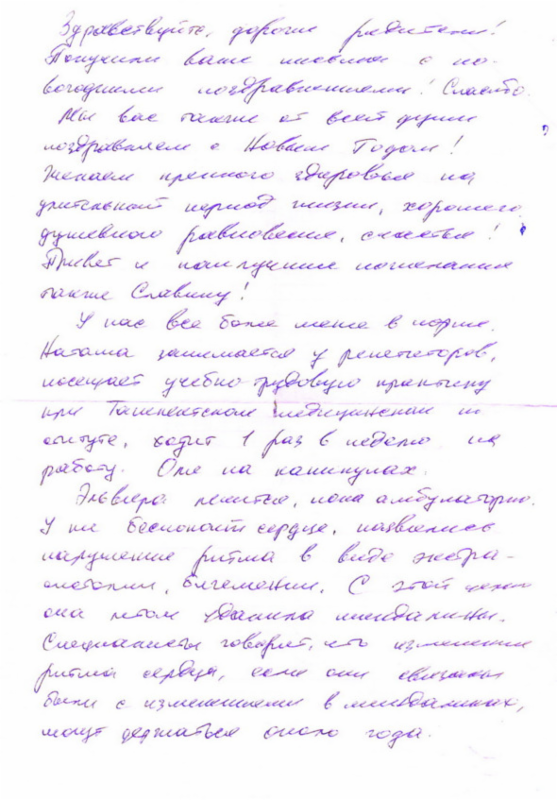 Здравствуйте, дорогие родители!
Получили ваше письмо с но-
вогодними поздравлениями! Спасибо.
Мы вас также от всей души
поздравляем с Новым Годом!
Желаем крепкого здоровья на
длительный период жизни, хорошего
душевного равновесия, счастья!
Привет и наилучшие пожелания
также Славину!
У нас все более менее в норме.
Наташа занимается у репетиторов,
посещает учебно-трудовую практику
при Ташкентском медицинском ин-
ституте, ходит 1 раз в неделю на
работу. Она на каникулах.
Эльвира лечится, пока амбулаторно.
У ней беспокоит сердце, появились
нарушение ритма в виде экстра-
систолии, бигемении. С этой целью
она летом удалила миндалины.
Специалисты говорят, что изменения
ритма сердца, если они связаны
были с изменениями в миндалинах,
могут держаться около года.